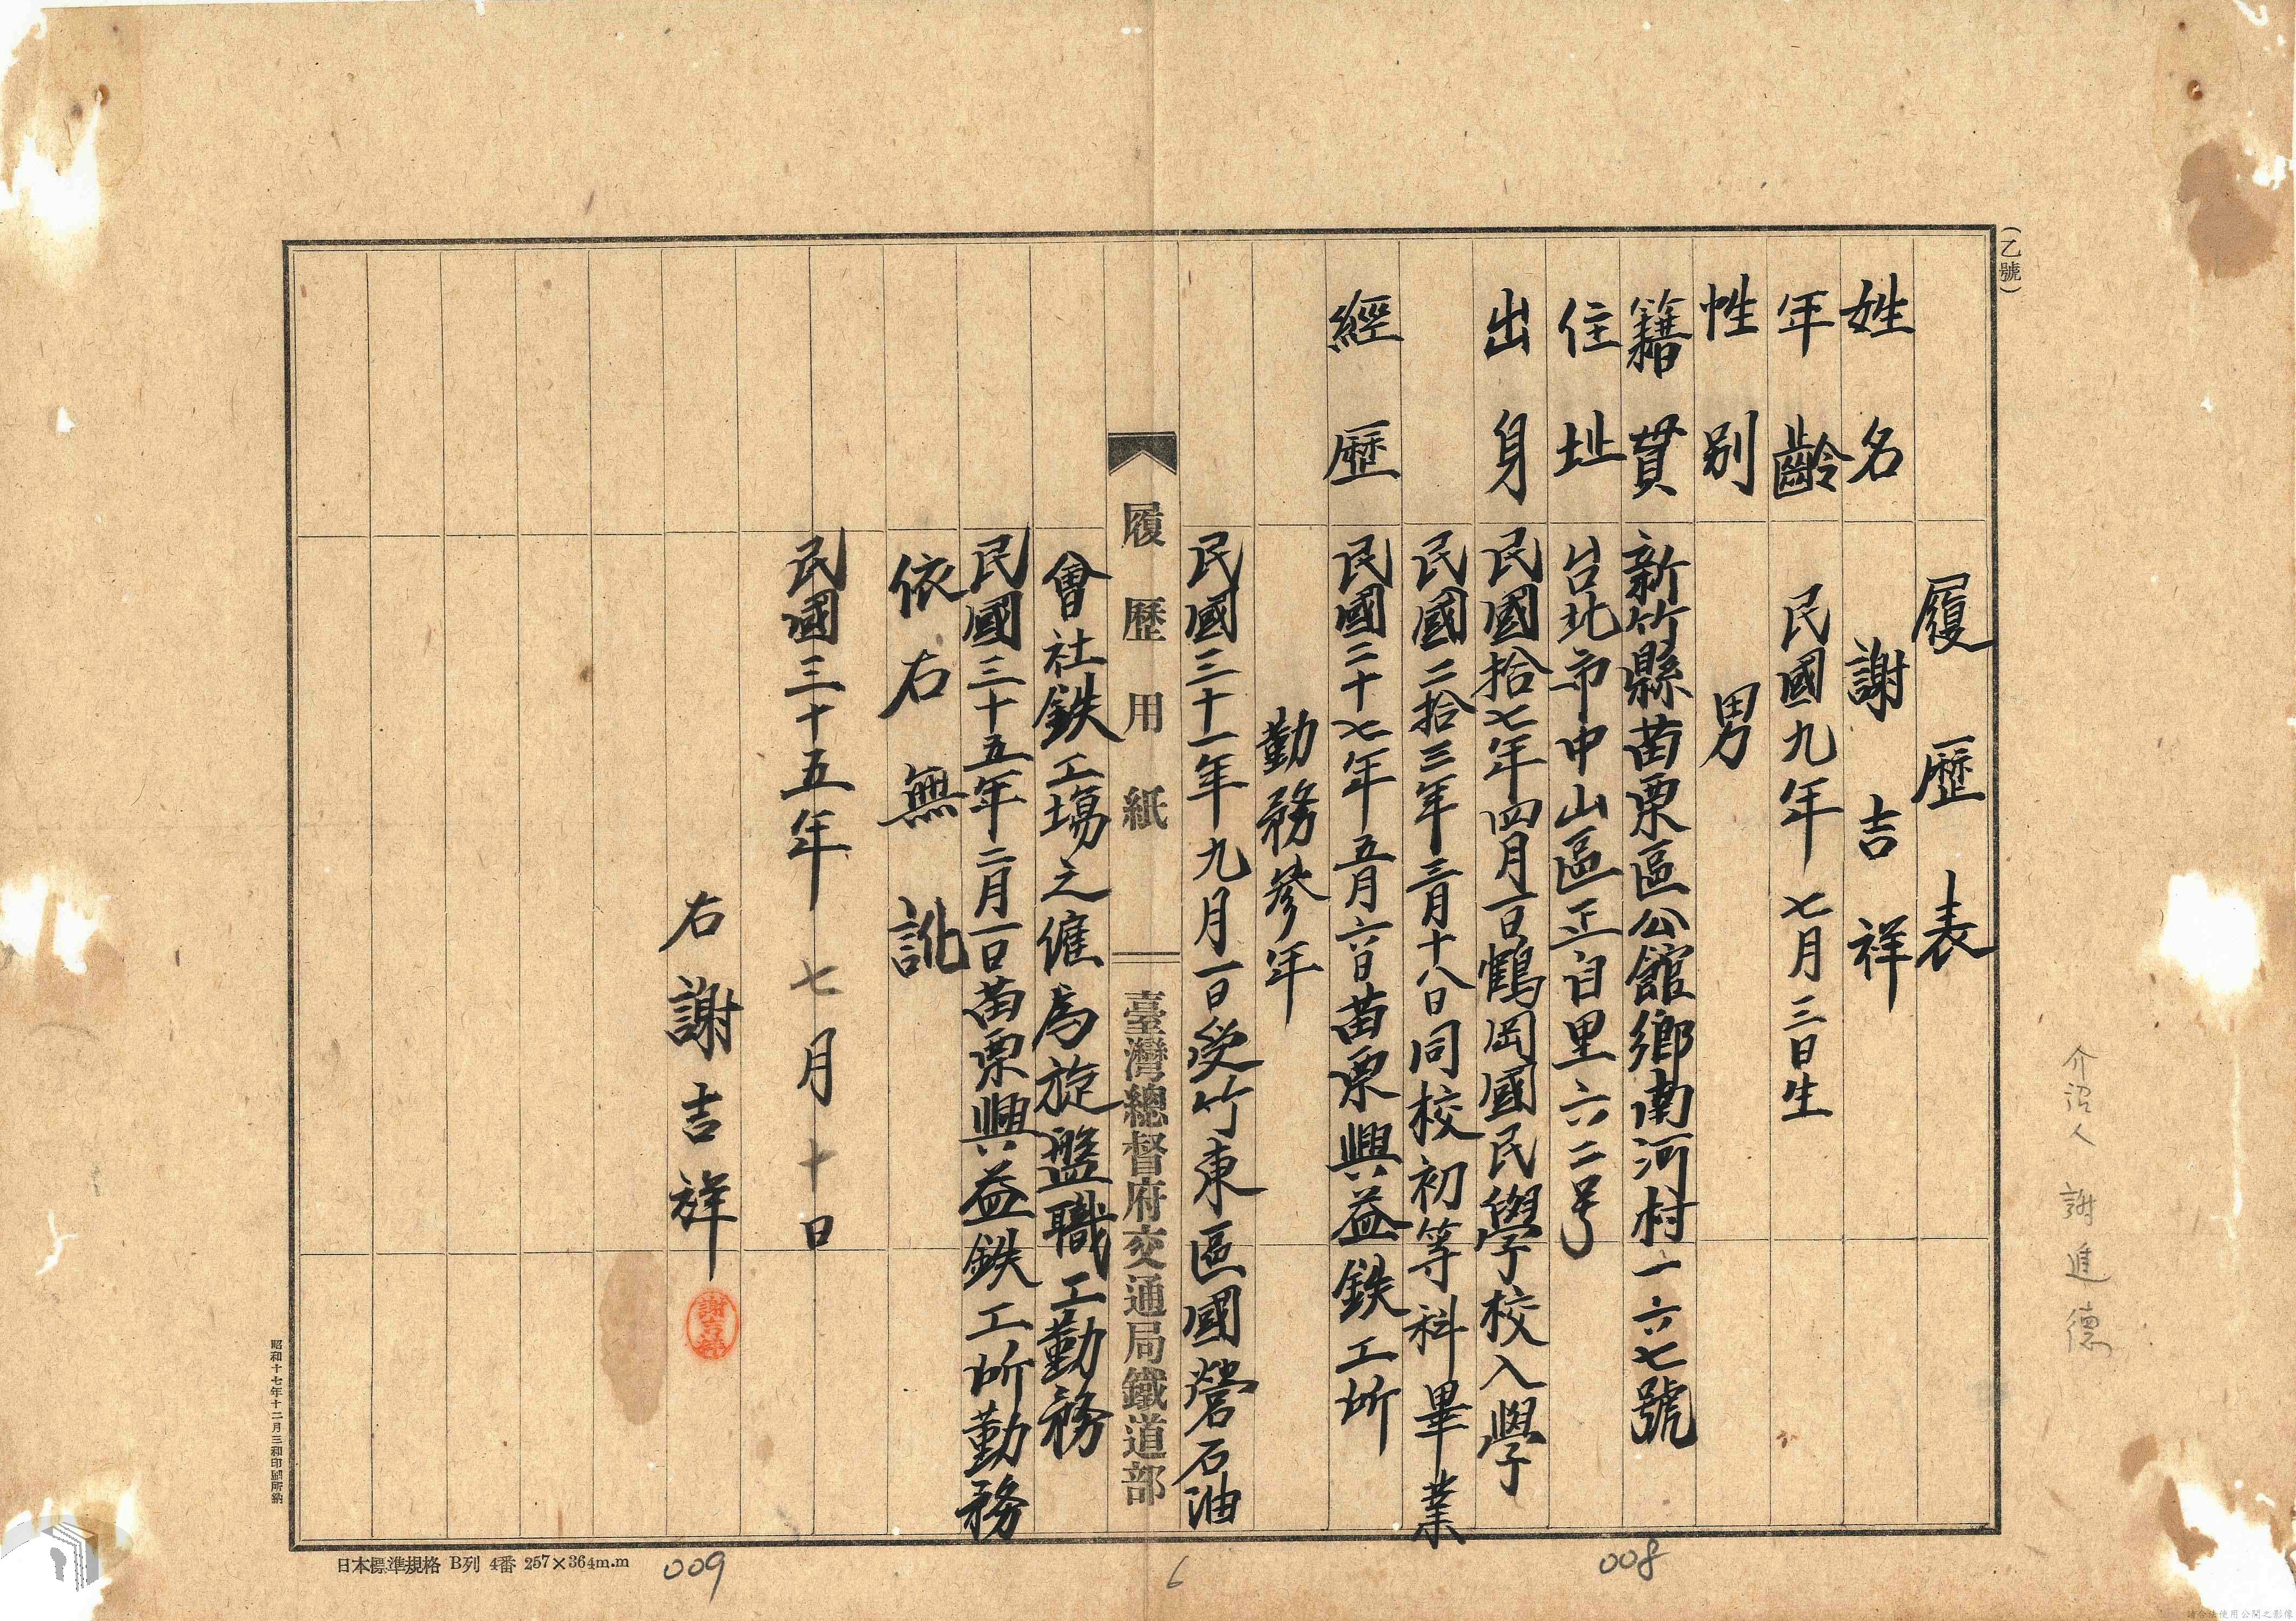 (乙號)
履歷表
姓名 謝吉祥
年齡 民國九年七月三日生
性別 男
籍貫 新竹縣苗栗區公館鄉南河村一六七號
住址 台北市中山區正自里六二号
出身 民國拾七年四月一日鶴岡國民學校入學
民國二拾三年三月十八日同校初等科畢業
經歷 民國二十七年五月六日苗栗興益鉄工所
勤務參年
民國三十一年九月一日受竹東區國營石油
履歷用紙 臺灣總督府交通局鐵道部
會社鉄工場之傭為旋盤職工勤務
民國三十五年二月一日苗栗興益鉄工所勤務
依右無訛
民國三十五年七月十日
右 謝吉祥
謝吉祥
介沼人 謝進德
昭和十七年十二月三和印刷所納
日本標準規格 B列 4番 257×364m.m
009
6
008
請合法使用公開之影像